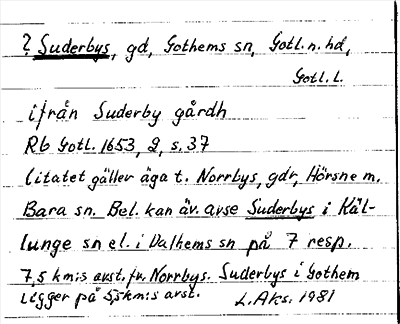 ? Suderbys, gd, Gothems sn, Gotl. n. hd,
Gotl. l.
ifrån Suderby gårdh
Rb Gotl. 1653, 2, s. 37
Citatet gäller äga t. Norrbys, gdr, Hörsne m.
Bara sn. Bel. kan äv. avse Suderbys i Käl-
lunge sn el. i Valhems sn på 7 resp.
7,5 km:s avst. fr. Norrbys. Suderbys i Gothem
ligger på 5,5 km:s avst.
L. Aks. 1981